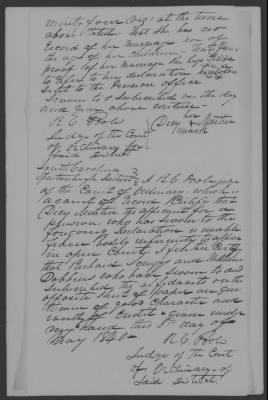 ninety four Days; at the time
above stated that she has no
record of her marriage nor of
the age of her children - that for
proof of her marriage she begs leave
to refer to her declaration
sent to the Pension office
Sworn to & subscribed on the day
and year above written -
R C Poole
Judge of the Court
of Ordinary for
said District
her
Dicey Martin
mark
South Carolina
Spartanburgh District
I R. C. Poole judge
of the Court of Ordinary which is
a court of record Certify that
Dicey Martin the applicant for a
pension who has sworn to the
foregoing Declaration is unable
from bodily infirmity to appear
in open Court. I further Certify
that Richard and William
who have sworn to and
Subscribed the affidavits on the
opposite sheet of paper are gen-
tlemen of good Character and
worthy of Credit - Given under
my hand this 5th day of
May 1840 -
R C Poole
Judge of the Court
of Ordinary of
Said District